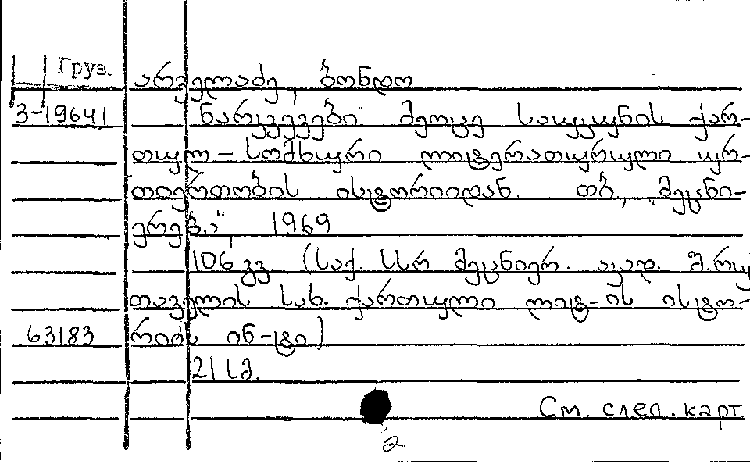 Груз.
არველაძე, ბონდო
3-19641 ნარკვევები მეოცე საუკუნის ქარ-
თულ-სომხური ლიტერათურული ურ-
თიერთობის ისტორიიდან. თბ., „მეცნი-
ერება“, 1969
106 გვ. (საქ. სსრ მეცნიერ. აკად. შ. რუს
თაველის სახ. ქართული ლიტ-ის ისტო-
63183 რიის ინ-ტი)
21 სმ.
См. след. карт
2